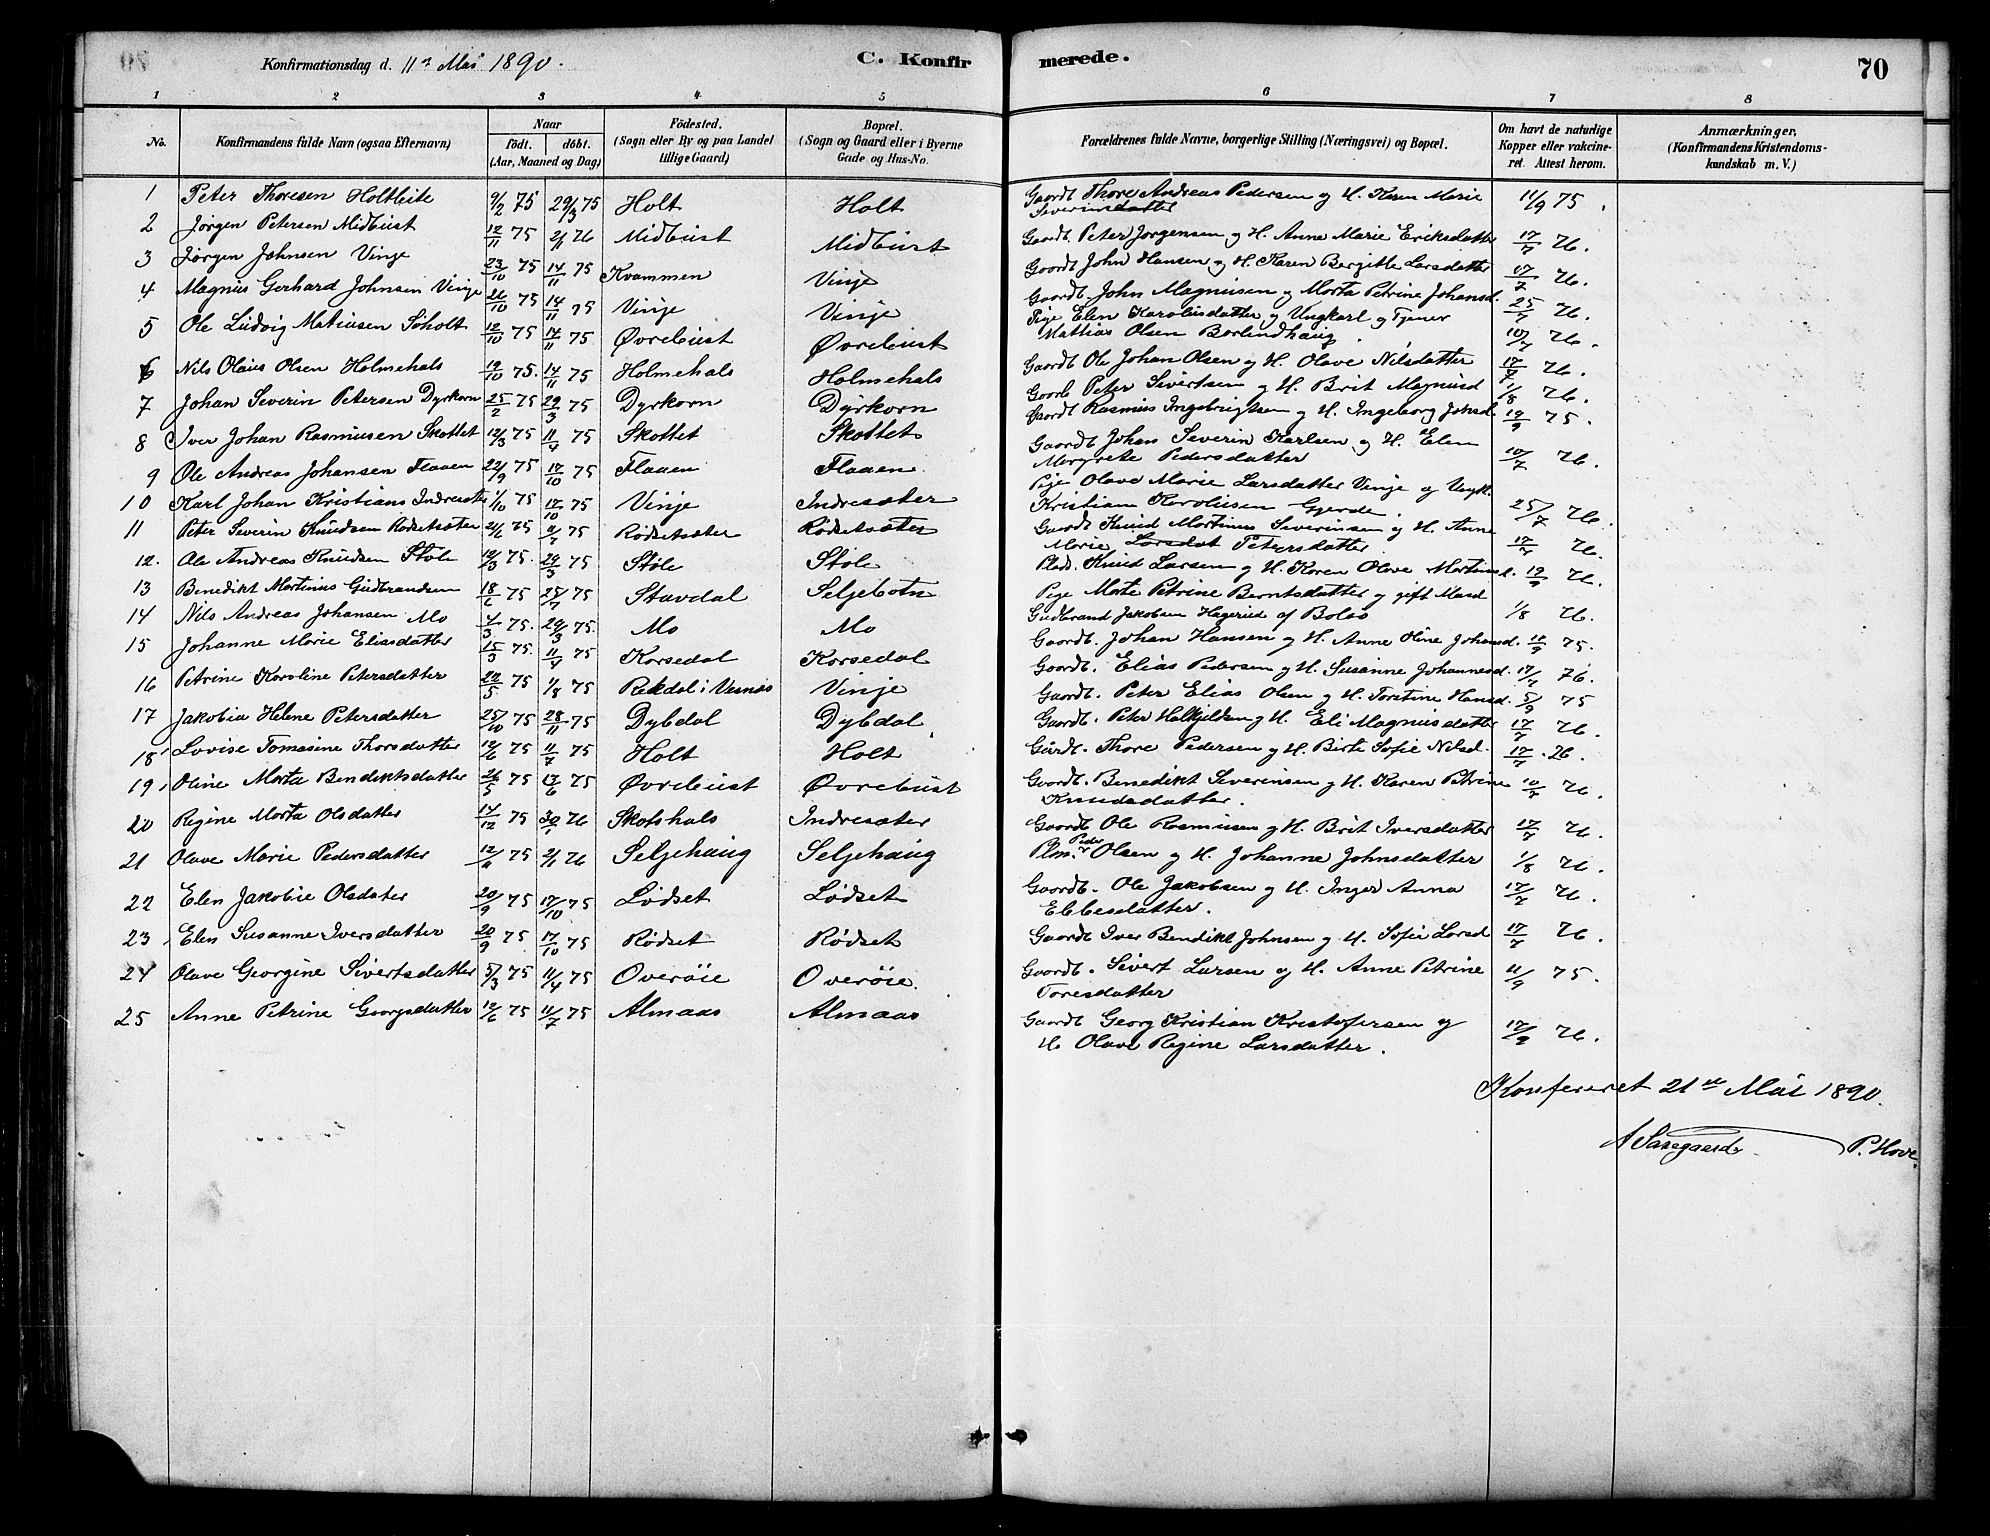 Konfirmationsdag d. 11te Mai 1890.
C. Konfirmerede.
70
1 2 3 4 5 6 7 8
No.
Konfirmandens fulde Navn (ogsaa Efternavn)
Naar
født. døbt.
(Aar, Maaned og Dag)
Fødested.
(Sogn eller By og paa Landet
tillige Gaard)
Bopæl.
(Sogn og Gaard eller i Byerne
Gade og Hus-No.
Forældrenes fulde Navne, borgerlige Stilling (Næringsvei) og Bopæl.
Om havt de naturlige
Kopper eller vakcine-
ret. Attest herom.
Anmærkninger,
(Konfirmandens Kristendoms-
kundskab m. V.)
1 Peter Thoresen Holtleite 9/2 75 29/3 75 Holt Holt Gaardb. Thore Andreas Pedersen og H. Karen Marie 11/9 75.
Severinsdatter
2 Jørgen Petersen Midbust 12/11 75 2/1 76 Midbust Midbust Gaardb. Peter Jørgensen og H. Anne Marie Eriksdatter 17/7 76.
3 Jørgen Johnsen Vinje 23/10 75 14/11 75 Kvammen Vinje Gaardb. John Hansen og H. Karen Bergitte Larsdatter 17/7 76.
4 Magnus Gerhard Johnsen Vinje 26/10 75 14/11 75 Vinje Vinje Gaardb. John Magnusen og Marta Petrine Johansd. 25/7 76.
5 Ole Ludvig Matiasen Søholt 12/10 75 14/11 75 Øvrebust Øvrebust Pige Elen Karolusdatter og Ungkarl og Tjener
Mathias Olsen Borlindhaug. 10/7 76.
6 Nils Olaus Olsen Holmehals 19/10 75. 14/11 75 Holmehals Holmehals Gaardb. Ole Johan Olsen og H. Olave Nilsdatter 17/7 76.
7 Johan Severin Petersen Dyrkorn 25/2 75 29/3 75 Dyrkorn Dyrkorn Gaardb. Peter Sivertsen og H. Brit Magnusd 1/8 76.
8 Iver Johan Rasmusen Skottet 12/3 75 11/4 75 Skottet Skottet Gaardb. Rasmus Ingebrigtsen og H. Ingeborg Johsd. 19/9 75.
9 Ole Andreas Johansen Flaaen 22/9 75 17/10 75 Flaaen Flaaen Gaardb. Johan Severin Karlsen og H. Elen
Margrete Pedersdatter 10/7 76.
10 Karl Johan Kristians Indresæter 1/10 75 17/10 75 Vinje Indresæter Pige Olave Marie Larsdatter Vinje og Ungk.
Kristian Karolusen Gjerde. 25/7 76.
11 Peter Severin Knudsen Rødsetsæter 21/6 75 11/7 75 Rødsetsæter Rødsetsæter Gaardb. Knud Martinus Severinsen og H. Anne
Marie Larsdat Petersdatter 17/7 76.
12. Ole Andreas Knudsen Støle 12/3 75. 29/3 75 Støle Støle Plads. Knud Larsen og H. Karen Olave Martinusd. 19/9 76.
13 Benedikt Martinus Gudbrandsen 18/6 75 25/7 75 Stavdal Seljebotn Pige Marte Petrine Berntsdatter og gift Mand
Gudbrand Jakobsen Hagerid af Bolsø 1/8 76.
14 Nils Andreas Johansen Mo 4/3 75. 29/3 75. Mo Mo Gaardb. Johan Hansen og H. Anne Oline Johansd. 12/9 75.
15 Johanne Marie Eliasdatter 15/3 75. 11/4 75 Korsedal Korsedal Gaardb. Elias Pedersen og H. Susanne Johannesd. 17/7 76.
16 Petrine Karoline Petersdatter 22/5 75 1/8 75 Rekdal i Vestnæs Vinje Gaardb. Peter Elias Olsen og H. Torstine Hansd. 5/9 75
17 Jakobia Helene Petersdatter 25/10 75 28/11 75 Dybdal Dybdal Gaardb. Peter Halkjeldsen og H. Eli Magnusdatter 17/7 76.
18 Lovise Tomasine Thorsdatter 12/6 75 11/7 75 Holt Holt Gårdb. Thore Pedersen og H. Birte Sofie Nilsd. 17/7 76.
19 Oline Marta Bendiktsdatter 26/5 75 13/6 75 Øvrebust Øvrebust Gaardb. Benedikt Severinsen og H. Karen Petrine 10/7 76.
Knudsdatter.
20 Regine Marta Olsdatter 14/12 75 30/1 76 Skotshals Indresæter Gaardb. Ole Rasmusen og H. Brit Iversdatter 17/7 76.
21 Olave Marie Pedersdatter 12/6 75 2/1 76 Seljehaug Seljehaug Plm. Peder Olsen og H. Johanne Johnsdatter 1/8 76.
22 Elen Jakobie Olsdater 20/9 75 17/10 75 Lødset Lødset Gaardb. Ole Jakobsen og H. Inger Anna 17/7 76.
Ebbesdatter.
23 Elen Susanne Iversdatter 20/9 75 17/10 75 Rødset Rødset Gaardb. Iver Bendikt Johnsen og H. Sofie Larsd 17/7 76.
24 Olave Georgine Sivertsdatter 5/3 75 11/4 75 Overøie Overøie. Gaardb. Sivert Larsen og H. Anne Petrine 11/9 75.
Toresdatter
25 Anne Petrine Georgsdatter 12/6 75 11/7 75 Almaas Almaas Gaardb. Georg Kristian Kristofersen og
H. Olave Regine Larsdatter. 17/9 76.
Konfereret 21de Mai 1890.
A Saxegaard P. Hove.